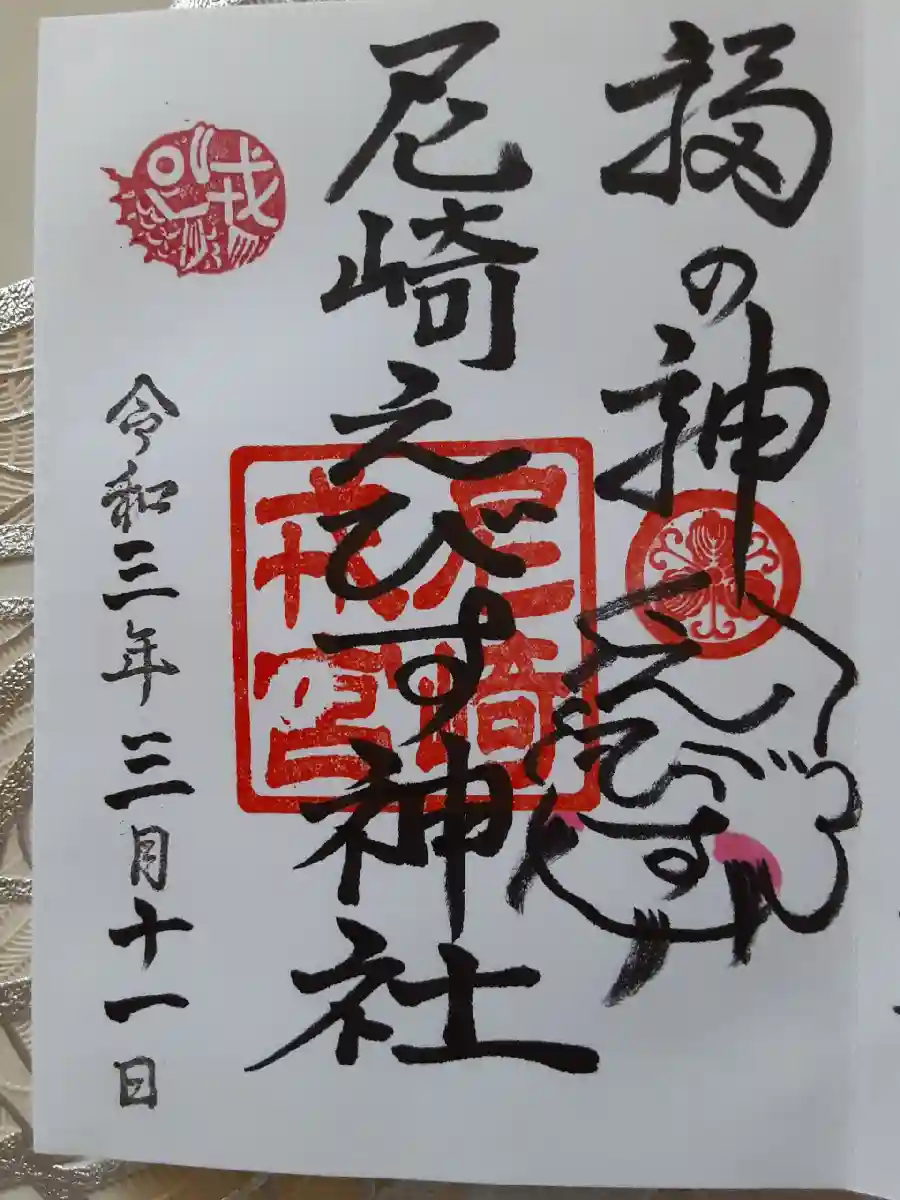 福の神
えびす
尼崎えびす神社
尼崎
戎宮
戎
令和三年三月十一日